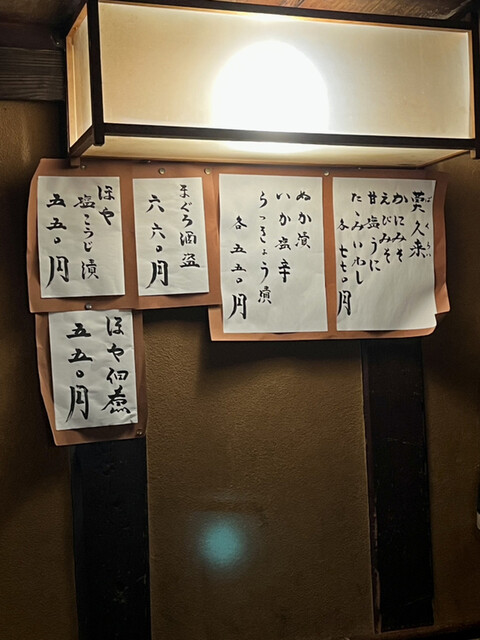 ばくらい
莫久来
かにみそ
えびみそ
甘塩うに
たゝみいわし
各七七〇円
ぬか漬
いか塩辛
らっきょう漬
各五五〇円
まぐろ酒盗
六六〇円
ほや
塩こうじ漬
五五〇円
ほや佃煮
五五〇円